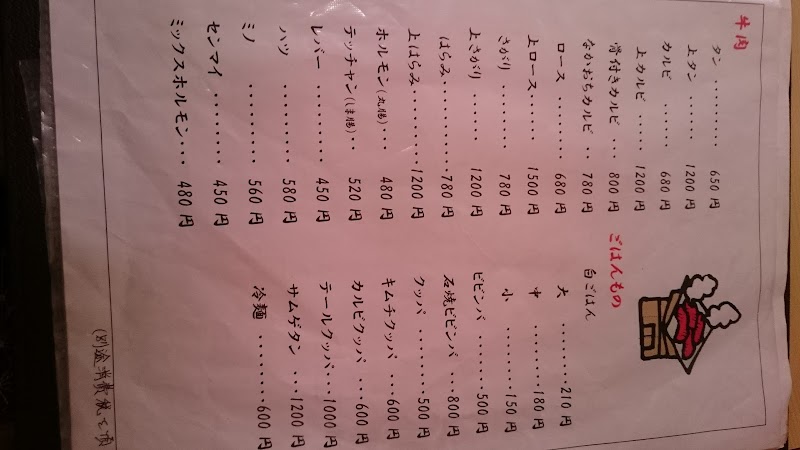 牛肉
タン ・・・・・・・・・ 650円
上タン ・・・・・・ 1200円
カルビ ・・・・・・ 680円
上カルビ ・・・・・ 1200円
骨付きカルビ ・・・ 800円
なかおちカルビ ・・ 780円
ロース ・・・・・・・・ 680円
上ロース・・・・・ 1500円
さがり ・・・・・・・・ 780円
上さがり ・・・・・ 1200円
はらみ・・・・・・・・・・780円
上はらみ・・・・・・・1200円
ホルモン(丸腸)・・・ 480円
テッチャン(しま腸)・・ 520円
レバー ・・・・・・・・ 450円
ハツ ・・・・・・・・ 580円
ミノ ・・・・・・・・ 560円
センマイ ・・・・・・・・ 450円
ミックスホルモン・・・ 480円
ごはんもの
白ごはん
大 ・・・・・・・・・210円
中 ・・・・・・・・180円
小 ・・・・・・・・150円
ビビンバ ・・・・・・・500円
石焼ビビンバ ・・・800円
クッパ ・・・・・・・・500円
キムチクッパ ・・・600円
カルビクッパ ・・・600円
テールクッパ ・・・1000円
サムゲタン ・・・1200円
冷麺 ・・・・・・・・・600円
(別途消費税を頂